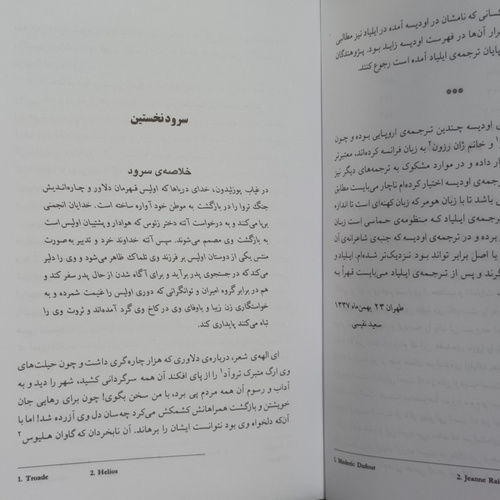 کسانی که نامشان در اودیسه آمده در ایلیاد نیز مطالبی
رار آن‌ها در فهرست اودیسه زاید بود. پژوهندگان
پایان ترجمه‌ی ایلیاد آمده است رجوع کنند.
***
ی اودیسه چندین ترجمه‌ی اروپایی بوده و چون
و خانم ژان رزون۲ به زبان فرانسه کرده‌اند، معتبرتر
ار داده و در موارد مشکوک به ترجمه‌های دیگر نیز
جمه‌ی اودیسه اختیار کرده‌ام ناچار می‌بایست مطابق
باشد تا با زبان هومر که زبان کهنه‌ای است تا اندازه
ترجمه‌ی ایلیاد که منظومه‌ی حماسی است زبان
برده و در ترجمه‌ی اودیسه که جنبه‌ی شاعرانه‌ی آن
با اصل برابر تواند بود نزدیک‌تر شده‌ام. ایلیاد و
گرند و پس از ترجمه‌ی ایلیاد می‌بایست قهراً به
طهران ۲۳ بهمن‌ماه ۱۳۳۷
سعید نفیسی
1. Médéric Dufour
2. Jeanne Rai
سرود نخستین
خلاصه‌ی سرود
در غیاب پوزئیدون، خدای دریاها که اولیس قهرمان دلاور و چاره‌اندیش
جنگ تروا را در بازگشت به موطن خود آواره ساخته است. خدایان انجمنی
برپا می‌کنند و به درخواست آتنه دختر زئوس که هوادار و پشتیبان اولیس است
به بازگشت وی مصمم می‌شوند. سپس آتنه خداوند خرد و تدبیر به‌صورت
منتس یکی از دوستان اولیس بر فرزند وی تلماک ظاهر می‌شود و وی را دلیر
می‌کند که در جستجوی پدر برآید و برای آگاه شدن از حال پدر سفر کند و
هم در برابر گروه امیران و توانگرانی که دوری اولیس را غنیمت شمرده و به
خواستگاری زن زیبا و باوفای وی در کاخ وی گرد آمده‌اند و ثروت وی را
تباه می‌کنند پایداری کند.
ای الهه‌ی شعر، درباره‌ی دلاوری که هزار چاره‌گری داشت و چون حیلت‌های
وی ارگ متبرک تروآد۱ را از پای افکند آن همه سرگردانی کشید، شهر را دید و به
آداب و رسوم آن همه مردم پی برد، با من سخن بگوی! چون برای رهایی جان
خویشتن و بازگشت همراهانش کشمکش می‌کرد چه‌سان دل وی آزرده شد! اما با
آنکه دلخواه وی بود نتوانست ایشان را برهاند. آن نابخردان که گاوان هلیوس۲
1. Troade
2. Helios